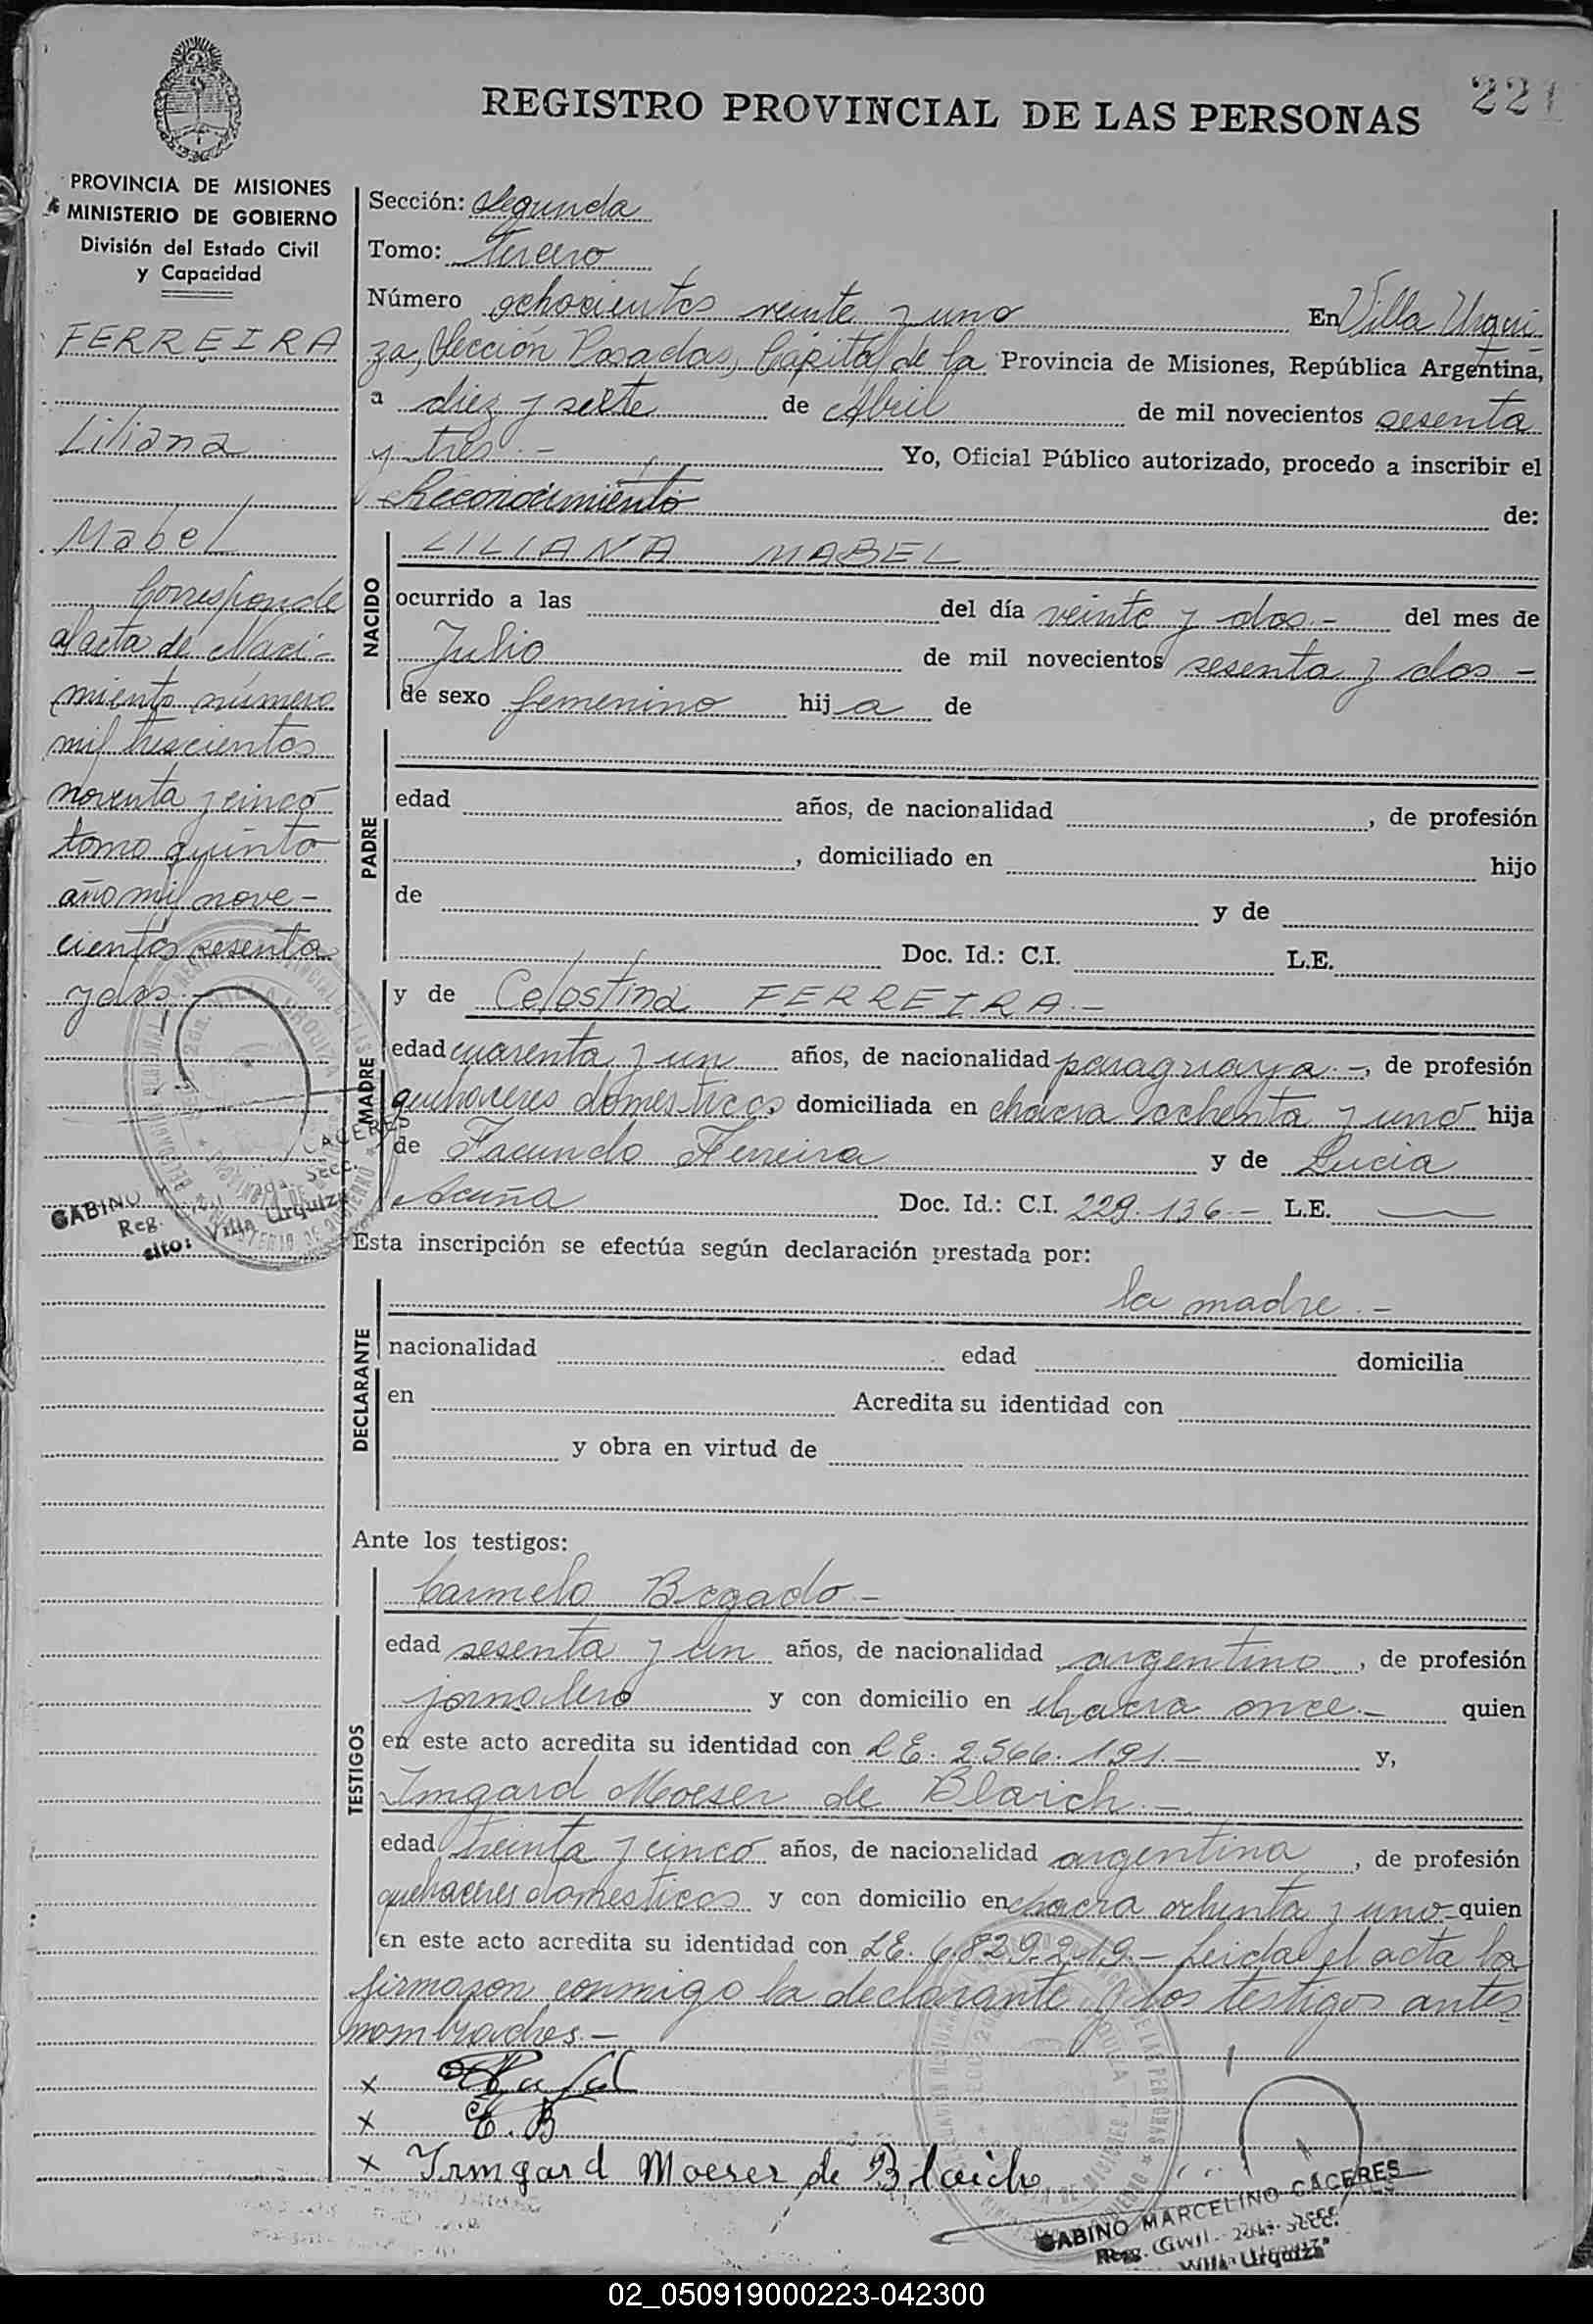 REGISTRO PROVINCIAL DE LAS PERSONAS
221
PROVINCIA DE MISIONES
MINISTERIO DE GOBIERNO
División del Estado Civil
y Capacidad
FERREIRA
Liliana
Mabel
Corresponde
al acta de Naci-
miento número
mil trescientos
noventa y cinco
tomo quinto
año mil nove-
cientos sesenta
y dos.-
GABINO M CACERES
Reg. Civil 2da. Secc.
sito: Villa Urquiza
Sección: Segunda
Tomo: Tercero
Número ochocientos veinte y uno En Villa Urqui-
za, Sección Posadas, Capital de la Provincia de Misiones, República Argentina,
a diez y siete de Abril de mil novecientos sesenta
y tres.- Yo, Oficial Público autorizado, procedo a inscribir el
Reconocimiento de:
NACIDO
LILIANA MABEL
ocurrido a las del día veinte y dos.- del mes de
Julio de mil novecientos sesenta y dos -
de sexo femenino hija de
PADRE
edad años, de nacionalidad , de profesión
, domiciliado en hijo
de y de
Doc. Id.: C.I. L.E.
MADRE
y de Celestina FERREIRA.-
edad cuarenta y un años, de nacionalidad paraguaya.-, de profesión
quehaceres domesticos domiciliada en chacra ochenta y uno hija
de Facundo Ferreira y de Lucia
Acuña Doc. Id.: C.I. 229.136.- L.E. —
Esta inscripción se efectúa según declaración prestada por:
DECLARANTE
la madre.-
nacionalidad edad domicilia
en Acredita su identidad con
y obra en virtud de
Ante los testigos:
TESTIGOS
Carmelo Bogado-
edad sesenta y un años, de nacionalidad argentino, de profesión
jornalero y con domicilio en chacra once.- quien
en este acto acredita su identidad con L.E. 2566.191.- y,
Irmgard Moeser de Blaich.-
edad treinta y cinco años, de nacionalidad argentina, de profesión
quehaceres domesticos y con domicilio en chacra ochenta y uno quien
en este acto acredita su identidad con L.E. 6.829.219.- Leida el acta la
firmaron conmigo la declarante y los testigos antes
nombrados.-
x
x C. B
x Irmgard Moeser de Blaich
GABINO MARCELINO CACERES
Reg. Civil 2da. Secc.
Villa Urquiza
02_050919000223-042300